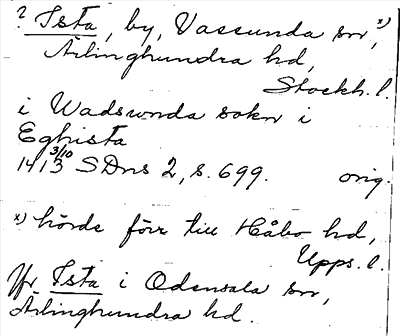 ? Ista, by, Vassunda sn, x)
Ärlinghundra hd,
Stockh. l.
i Wadsunda sokn i
Eghista
1413 3/10 SDns 2, s. 699. orig.
x) hörde förr till Håbo hd,
Upps. l.
Jfr Ista i Odensala sn,
Ärlinghundra hd.